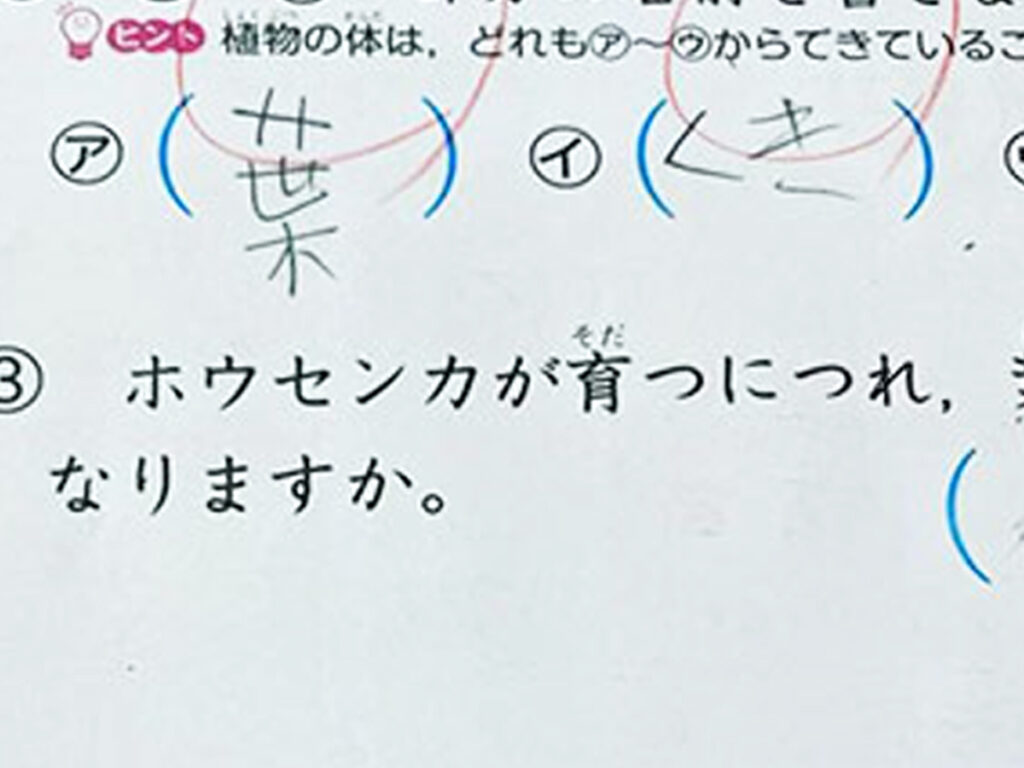 ヒント 植物の体は，どれも㋐〜㋒からできているこ
㋐ (葉) ㋑ (くき)
③ ホウセンカが育つにつれ，
そだ
なりますか。 (